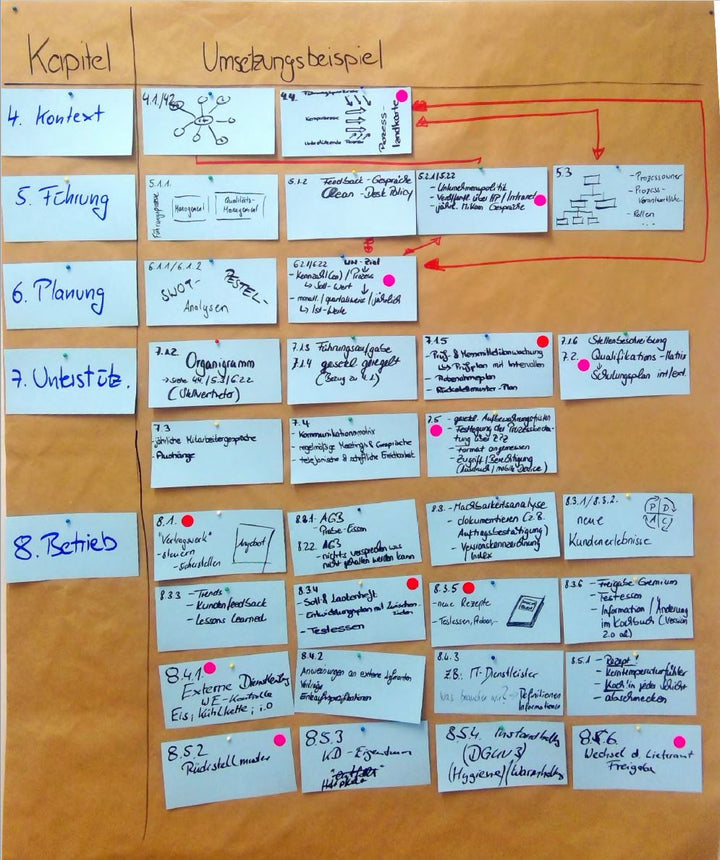 Kapitel
Umsetzungsbeispiel
4. Kontext
4.1/4.2
4.4.
Führungsprozesse
Kernprozesse
Unterstützende Prozesse
Prozess-
landkarte
5. Führung
5.1.1.
Führungsprozesse
Management
Qualitäts-
Management
5.1.2 Feedback-Gespräche
Clean-Desk Policy
5.2.1/5.2.2
- Unternehmenspolitik
- Veröffentl. über HP / Intranet
- jährl. Mitarb. Gespräche
5.3
- Prozessowner
- Prozess-
verantwortliche
- Rollen
6. Planung
6.1.1/6.1.2
SWOT-
PESTEL-
Analysen
6.2.1/6.2.2 UN-Ziel
- Kennzahl(en) / Prozess
↳ Soll-Wert
- monatl. / quartalsweise / jährlich
↳ Ist-Werte
7. Unterstütz.
7.1.2
Organigramm
→ siehe 4.4/5.3/6.2.2
(Stellvertreter)
7.1.3 Führungsaufgabe
7.1.4 gesetzl. geregelt
(Bezug zu 4.1)
7.1.5
- Prüf- & Messmittelüberwachung
↳ Prüfplan mit Intervallen
- Probenahmeplan
- Rückstellmuster-Plan
7.1.6 Stellenbeschreibung
7.2. Qualifikations-Matrix
Schulungsplan int/ext.
7.3
- jährliche Mitarbeitergespräche
- Aushänge
7.4
- Kommunikationsmatrix
- regelmäßige Meetings & Gespräche
- telefonische & schriftliche Erreichbarkeit
7.5
- gesetzl. Aufbewahrungsfristen
- Festlegung der
- Format angemessen
- Zugriff / Berechtigung
(Ausdruck / mobile Device)
8. Betrieb
8.1.
"Vertragswerk"
- steuern
- sicherstellen
Angebot
8.2.1. AGB
- Probe-Essen
8.2.2. AGB
- nichts versprechen was
nicht gehalten werden kann
8.2.3. - Machbarkeitsanalyse
- dokumentieren (z.B.
Auftragsbestätigung)
- Versionskennzeichnung
/ Index
8.3.1/8.3.2.
neue
Kundenerlebnisse
P D
A C
8.3.3 - Trends
- Kundenfeedback
- Lessons Learned
8.3.4
- Soll & Lastenheft
- Entwicklungsplan mit Zwischen-
zielen
- Testessen
8.3.5
- neue Rezepte
- Testessen, Proben, -
8.3.6 - Freigabe Gremium
- Testessen
- Information / Änderung
im Kochbuch (Version
2.0 al)
8.4.1
- Externe Dienstleistung
WE-Kontrolle
Eis, Kühlkette, i.O
8.4.2
Anweisungen an externe Lieferanten
Verträge
Einkaufsspezifikationen
8.4.3
z.B. IT-Dienstleister
was brauchen wir? → Definitionen
Informationen
8.5.1 - Rezept
- Kerntemperaturfühler
- Koch in jeder Schicht
- abschmecken
8.5.2
Rückstellmuster
8.5.3
KD-Eigentum
8.5.4. Instandhaltg
(DGUV3)
(Hygiene)/Warmhaltg
8.5.6
Wechsel d. Lieferant
Freigabe